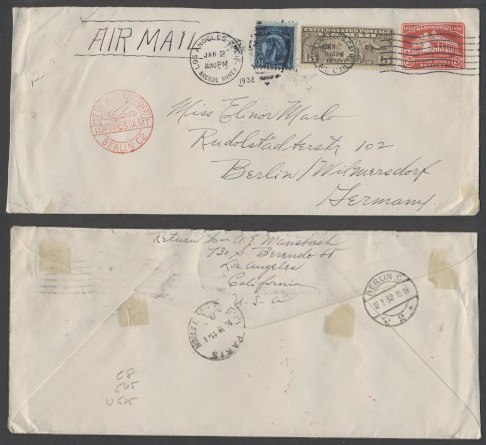 AIR MAIL
LOS ANGELES
JAN 2
11 30 PM
ARCADE ANNEX
1932
UNITED STATES POSTAGE
WASHINGTON
LUFTPOSTAMT
BERLIN C2
Miss Elinor Marlo
Rudolstädterstr 102
Berlin/Wilmersdorf
Germany
Return to A E Mansbach
731 S Berendo St
Los Angeles
California
U.S.A
BERLIN C
2
PARIS
C8
565
U525